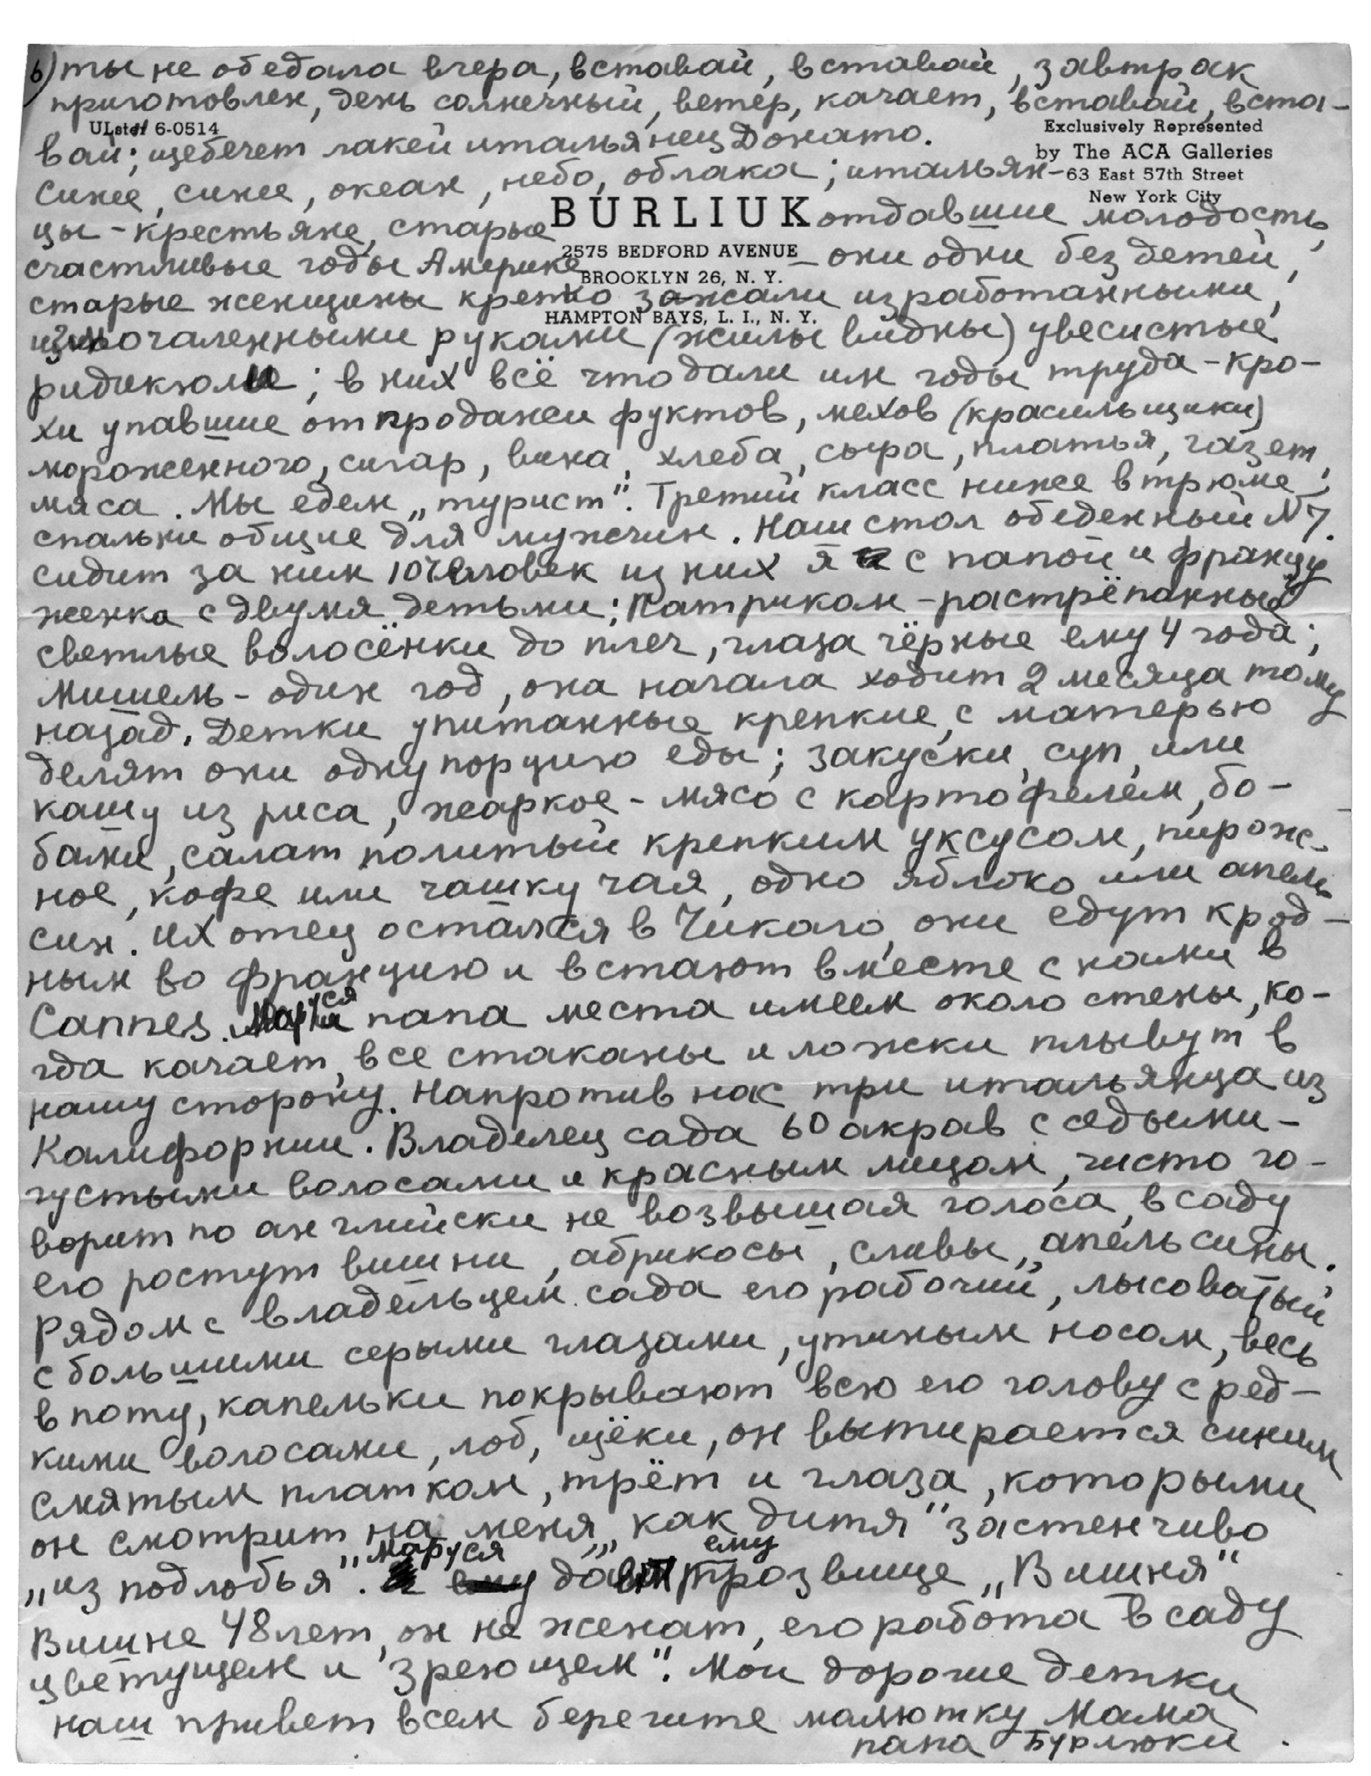 6) ты не обедала вчера, вставай, вставай, завтрак
приготовлен, день солнечный, ветер, качает, вставай, вста-
ULster 6-0514
Exclusively Represented
вай; щебечет лакей итальянец Донато.
by The ACA Galleries
63 East 57th Street
New York City
Синее, синее, океан, небо, облака; итальян-
BURLIUK
цы-крестьяне, старые отдавшие молодость,
2575 BEDFORD AVENUE
счастливые годы Америке — они одни без детей,
BROOKLYN 26, N. Y.
старые женщины крепко зажали изработанными,
HAMPTON BAYS, L. I., N. Y.
измочаленными руками (жилы видны) увесистые
ридикюли; в них всё что дали им годы труда-кро-
хи упавшие от продажи фруктов, мехов (красильщики)
мороженного, сигар, вина, хлеба, сыра, платья, газет,
мяса. Мы едем „турист". Третий класс ниже в трюме,
спальни общие для мужчин. Наш стол обеденный N7.
сидит за ним 10 человек из них я с папой и францу
женка с двумя детьми; Патриком - растрёпанные
светлые волосёнки до плеч, глаза чёрные ему 4 года;
Мишель - один год, она начала ходит 2 месяца тому
назад. Детки упитанные крепкие, с матерью
делят они одну порцию еды; закуски, суп, или
кашу из риса, жаркое - мясо с картофелем, бо-
бами, салат политый крепким уксусом, пирож-
ное, кофе или чашку чая, одно яблоко или апель
син. Их отец остался в Чикаго, они едут к род-
ным во францию и встают вместе с нами в
Cannes. Маруся папа места имеем около стены, ко-
гда качает, все стаканы и ложки плывут в
нашу сторону. Напротив нас три итальянца из
Калифорнии. Владелец сада 60 акрав с седыми-
густыми волосами и красным лицом, чисто го-
ворит по английски не возвышая голоса, в саду
его ростут вишни, абрикосы, сливы, апельсины.
Рядом с владельцем сада его рабочий, лысоватый
с большими серыми глазами, утиным носом, весь
в поту, капельки покрывают всю его голову с ред-
кими волосами, лоб, щёки, он вытирается синим
смятым платком, трёт и глаза, которыми
он смотрит на меня „как дитя" застенчиво
„из подлобья". Маруся даёт ему прозвище „Вишня"
Вишне 48 лет, он не женат, его работа в саду
цветущем и зреющем". Мои дорогие детки
наш привет всем берегите малютку Мама
папа Бурлюки.